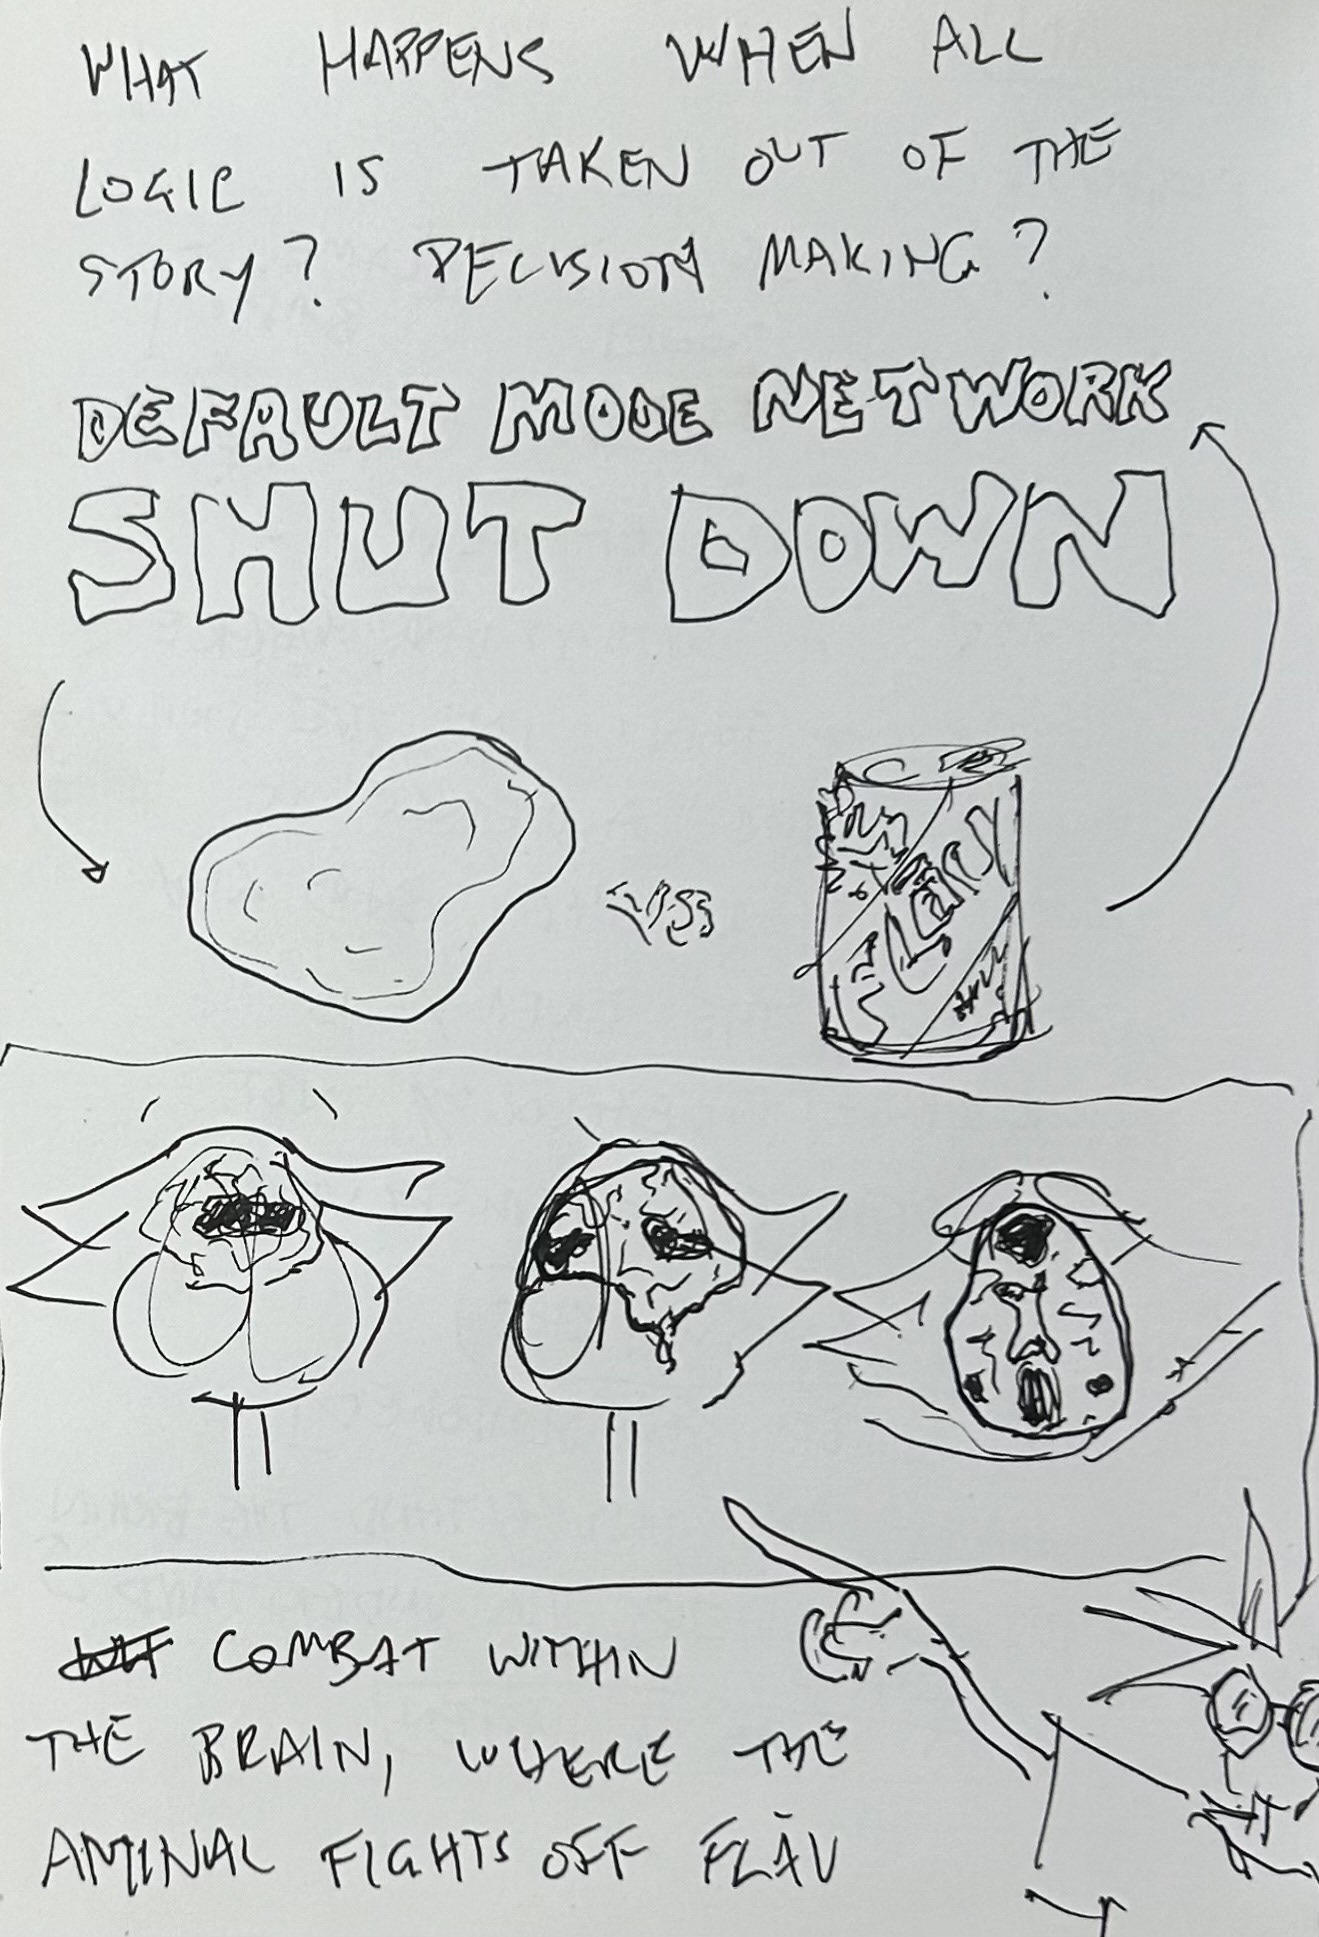 WHAT HAPPENS WHEN ALL
LOGIC IS TAKEN OUT OF THE
STORY? DECISION MAKING?
DEFAULT MODE NETWORK
SHUT DOWN
COMBAT WITHIN
THE BRAIN, WHERE THE
AMINAL FIGHTS OFF FLĀV